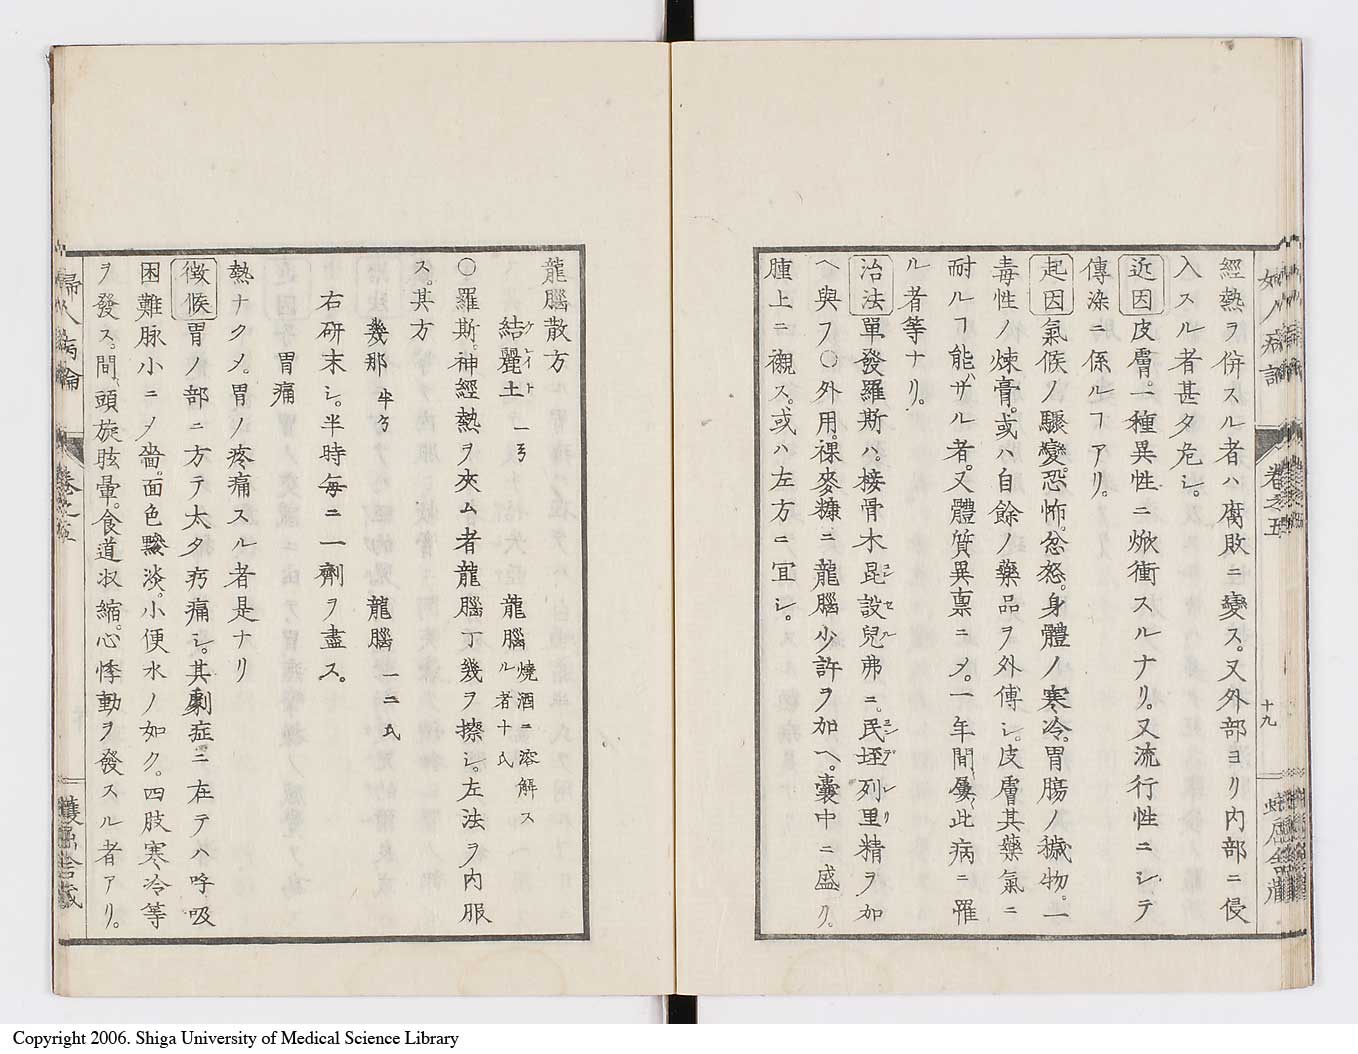 經熱ヲ併スル者ハ腐敗ニ變ス。又外部ヨリ内部ニ侵
入スル者甚タ危シ。
近因皮膚。一種異性ニ焮衝スルナリ。又流行性ニシテ
傳染ニ係ルヿアリ。
起因氣候ノ驟變。恐怖。忿怒。身體ノ寒冷。胃膓ノ穢物。一
毒性ノ煉膏。或ハ自餘ノ藥品ヲ外傅シ。皮膚其藥氣ニ
耐ルヿ能ハザル者。又體質異稟ニメ。一年間屡此病ニ罹
ル者等ナリ。
治法單發羅斯ハ。接骨木昆設兒弗ニ。民垤列里精ヲ加
ヘ與フ〇外用。裸麥糠ニ龍腦少許ヲ加ヘ。囊中ニ盛ク。
腫上ニ襯ス。或ハ左方ニ宜シ。
龍腦散方
結麗土 一ヲ 龍腦 燒酒ニ溶解スル者十氏
〇羅斯。神經熱ヲ夾ム者龍腦丁幾ヲ擦シ。左法ヲ内服
ス。其方
幾那 半ヲ 龍腦 一二氏
右研末シ。半時毎ニ一劑ヲ盡ス。
胃痛
熱ナクメ。胃ノ疼痛スル者是ナリ
徴候胃ノ部ニ方テ太タ㽲痛シ。其劇症ニ在テハ呼吸
困難脉小ニメ嗇。面色黲淡。小便水ノ如ク。四肢寒冷等
ヲ發ス。間頭旋眩暈。食道收縮。心悸動ヲ發スル者アリ。
婦人病論
卷之五
十九
Copyright 2006. Shiga University of Medical Science Library